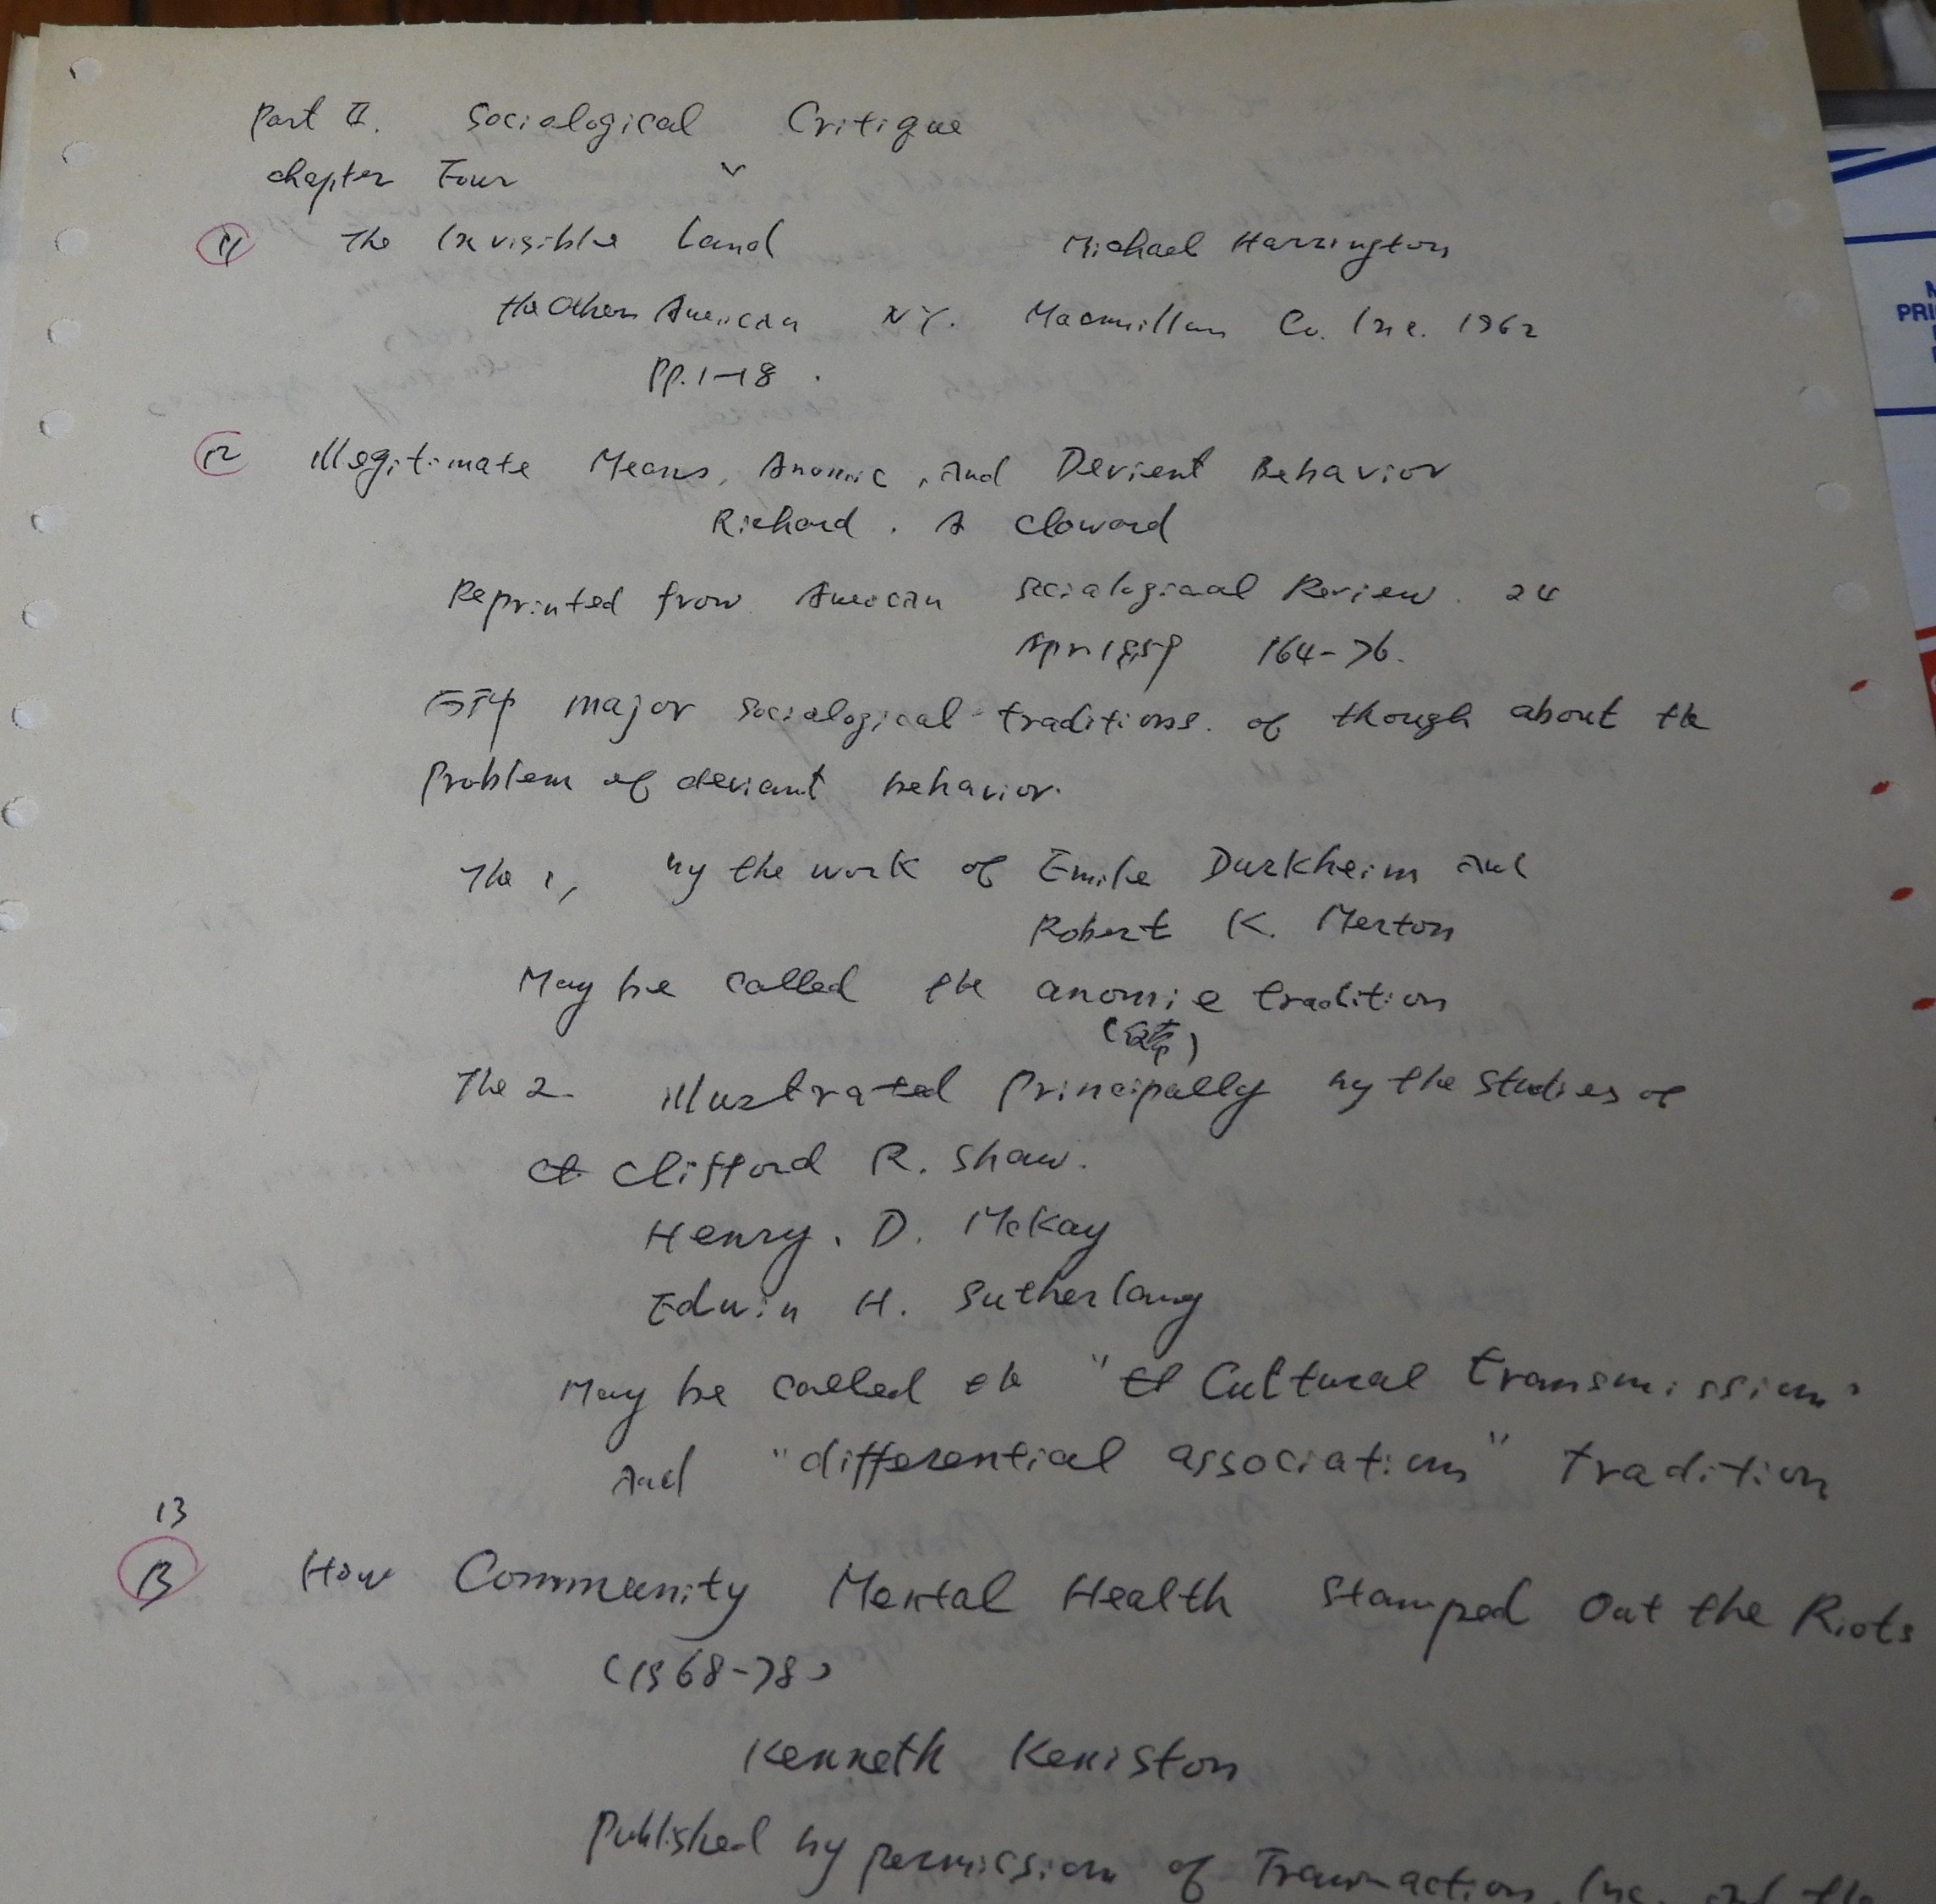 Part II. Sociological Critique
chapter Four
11 The Invisible Land Michael Harrington
the Other American NY. Macmillan Co. Inc. 1962
PP. 1-18.
12 Illegitimate Means, Anomic, And Devient Behavior
Richard. A Cloward
Reprinted from American Sociological Review. 24
Apr 1959 164-76.
major sociological traditions. of though about the
Problem of deviant behavior.
The 1, by the work of Emile Durkheim And
Robert K. Merton
May be called the anomie tradition
The 2 illustrated Principally by the studies of
Clifford R. Shaw.
Henry. D. McKay
Edwin H. Sutherlang
May be called the "Cultural transmission"
And "differential association" tradition
13
13 How Community Mental Health Stamped Out the Riots
(1968-78)
Kenneth Keniston
Published by permission of Transaction, Inc. and the
PRI